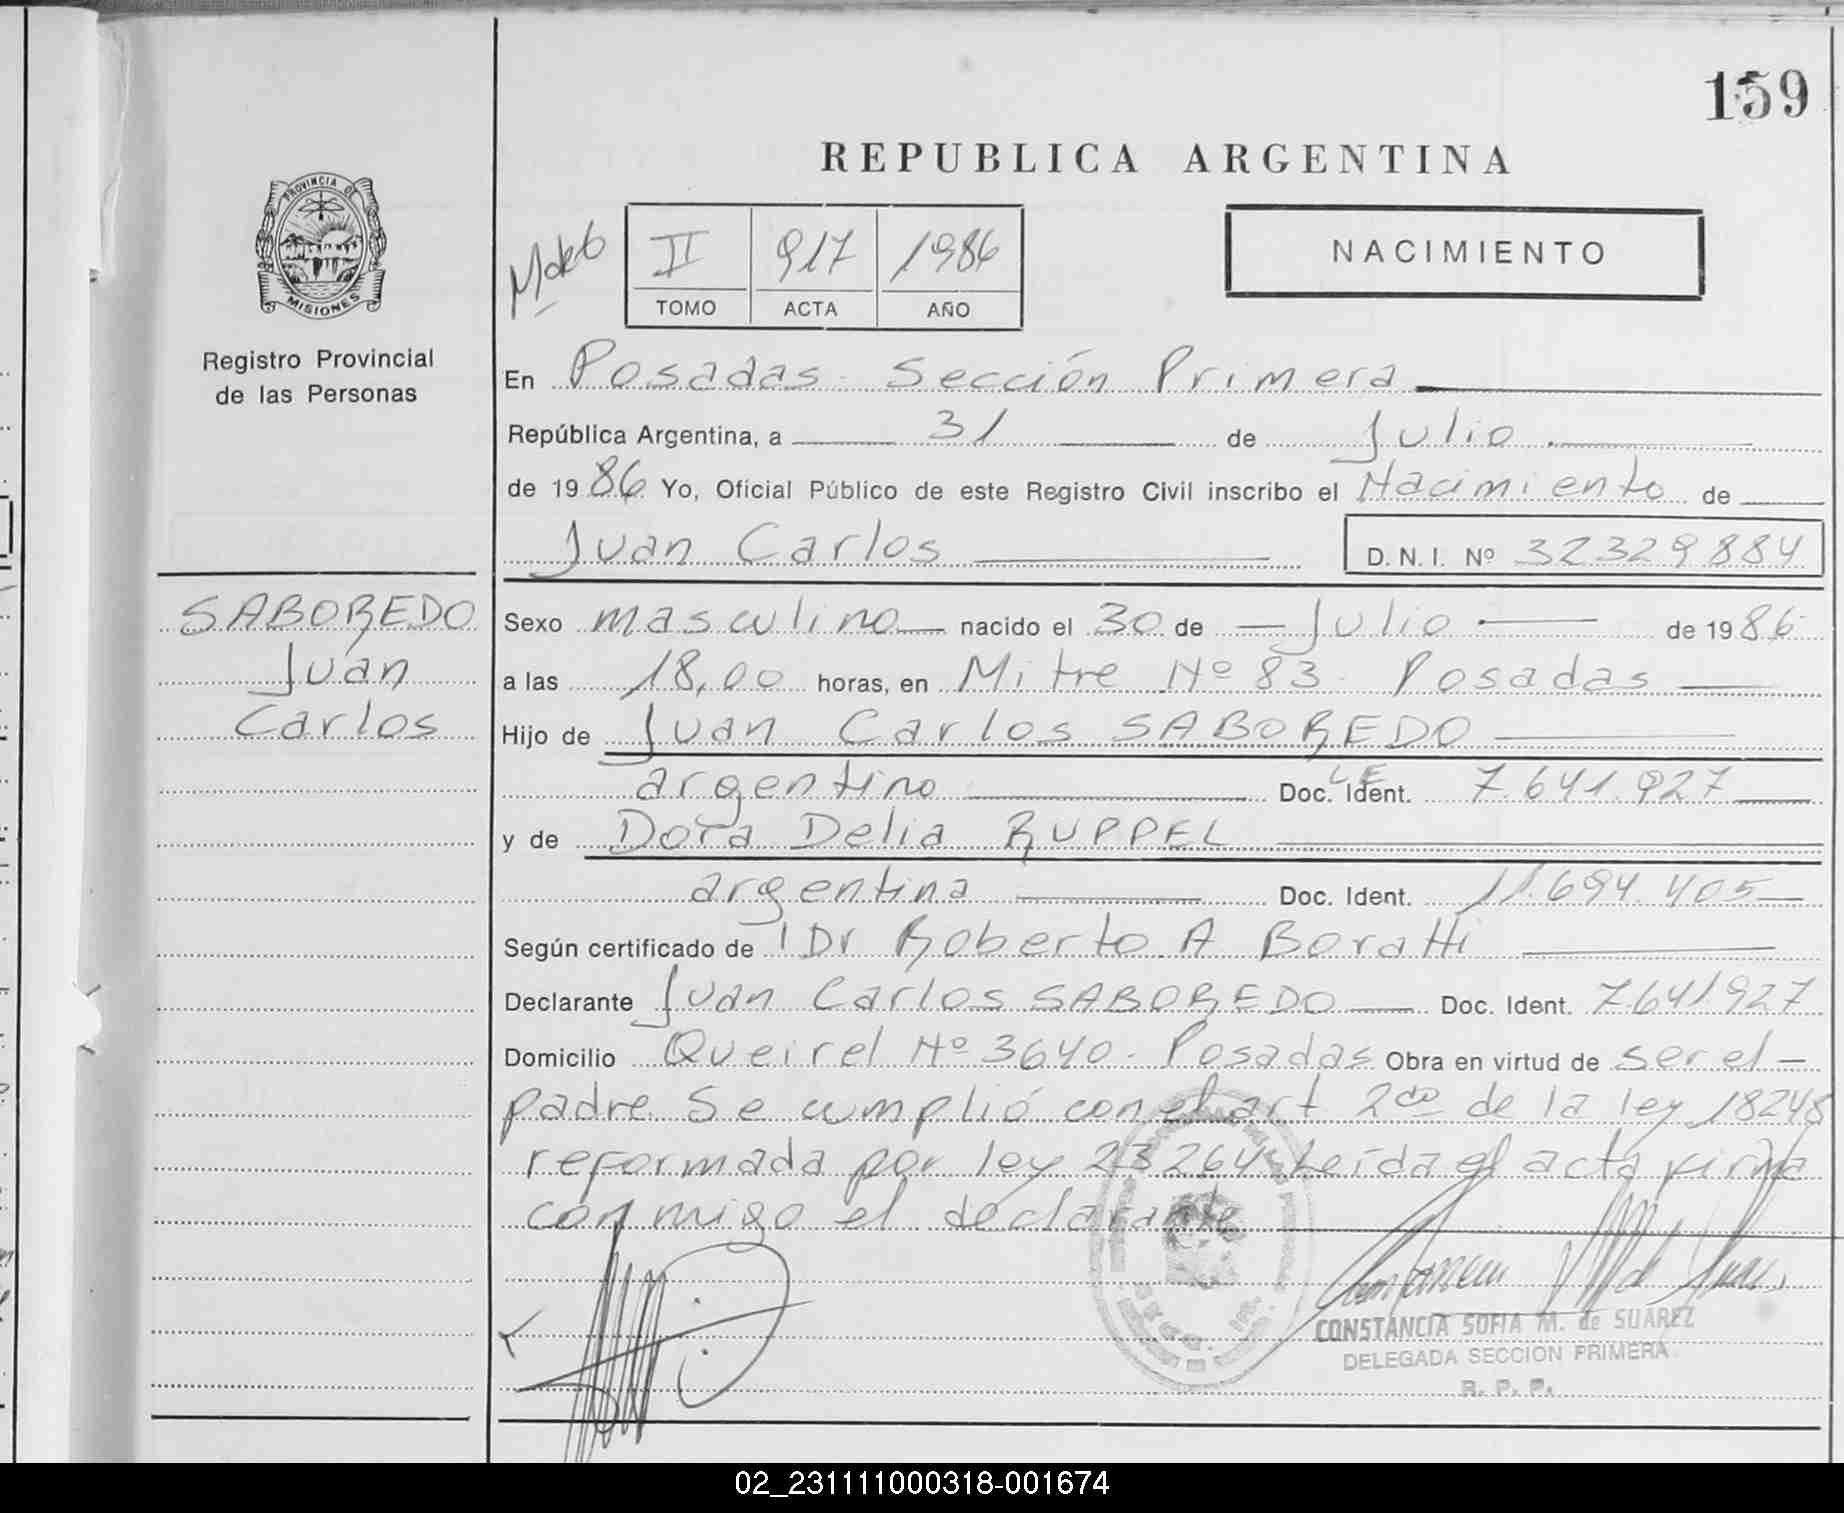 159
REPUBLICA ARGENTINA
PROVINCIA DE
MISIONES
Registro Provincial
de las Personas
II 917 1986
TOMO ACTA AÑO
NACIMIENTO
En Posadas Sección Primera
República Argentina, a 31 de Julio
de 1986 Yo, Oficial Público de este Registro Civil inscribo el Nacimiento de
Juan Carlos D.N.I. Nº 32329884
SABOREDO
Juan
Carlos
Sexo masculino nacido el 30 de Julio de 1986
a las 18,00 horas, en Mitre Nº 83 Posadas
Hijo de Juan Carlos SABOREDO
argentino Doc. Ident. LE 7.641.927
y de Dora Delia RUPPEL
argentina Doc. Ident. 11.694.405
Según certificado de Dr Roberto A Boratti
Declarante Juan Carlos SABOREDO Doc. Ident. 7.641.927
Domicilio Queirel Nº 3640. Posadas Obra en virtud de ser el
padre Se cumplió con el art 2do de la ley 18248
reformada por ley 23264 Leída el acta firma
conmigo el declarante
CONSTANCIA SOFIA M. de SUAREZ
DELEGADA SECCION PRIMERA
R. P. P.
02_231111000318-001674